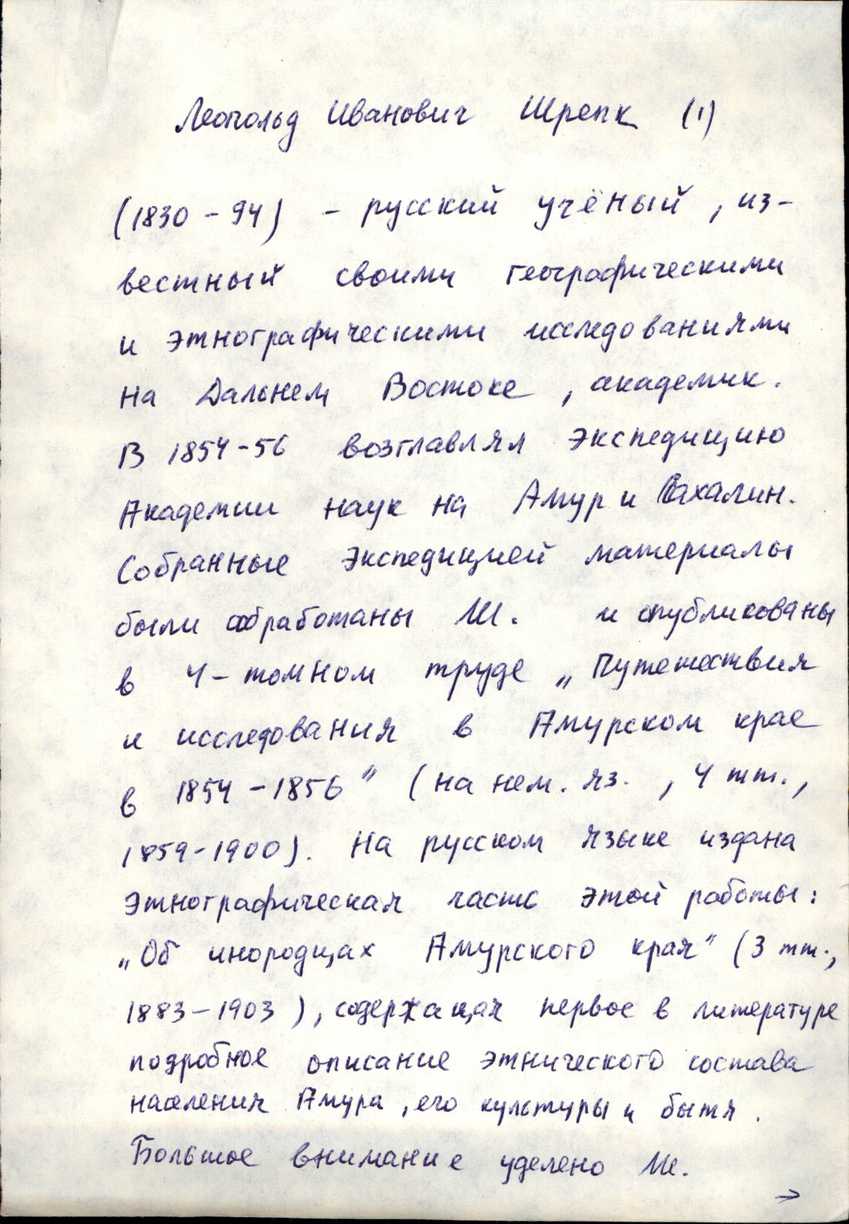 Леопольд Иванович Шренк (1)
(1830-94) - русский учёный, из-
вестный своими географическими
и этнографическими исследованиями
на Дальнем Востоке, академик.
В 1854-56 возглавлял экспедицию
Академии наук на Амур и Сахалин.
Собранные экспедицией материалы
были обработаны Ш. и опубликованы
в 4-томном труде „Путешествия
и исследования в Амурском крае
в 1854-1856" (на нем. яз., 4 тт.,
1859-1900). На русском языке издана
этнографическая часть этой работы:
„Об инородцах Амурского края" (3 тт.,
1883-1903), содержащая первое в литературе
подробное описание этнического состава
населения Амура, его культуры и бытя.
Большое внимание уделено Ш.
→